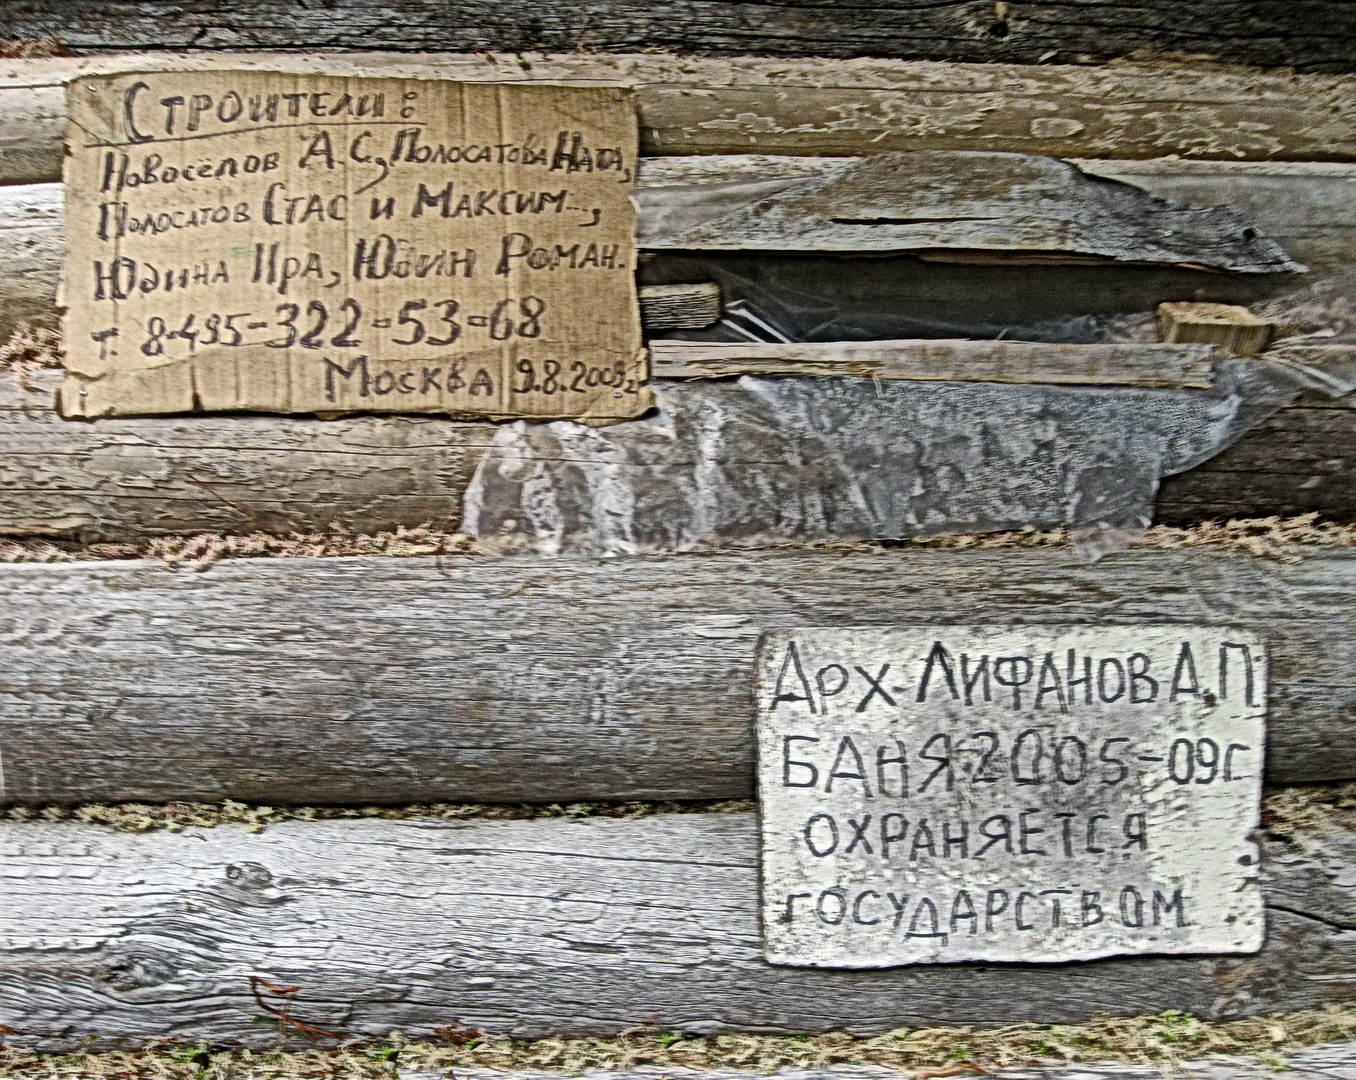 Строители:
Новосёлов А.С, Полосатова Ната,
Полосатов Стас и Максим...,
Юдина Ира, Юдин Роман.
т. 8-495-322-53-68
Москва 9.8.2009г.
Арх. Лифанов А.П
БАНЯ 2005-09г
ОХРАНЯЕТСЯ
ГОСУДАРСТВОМ